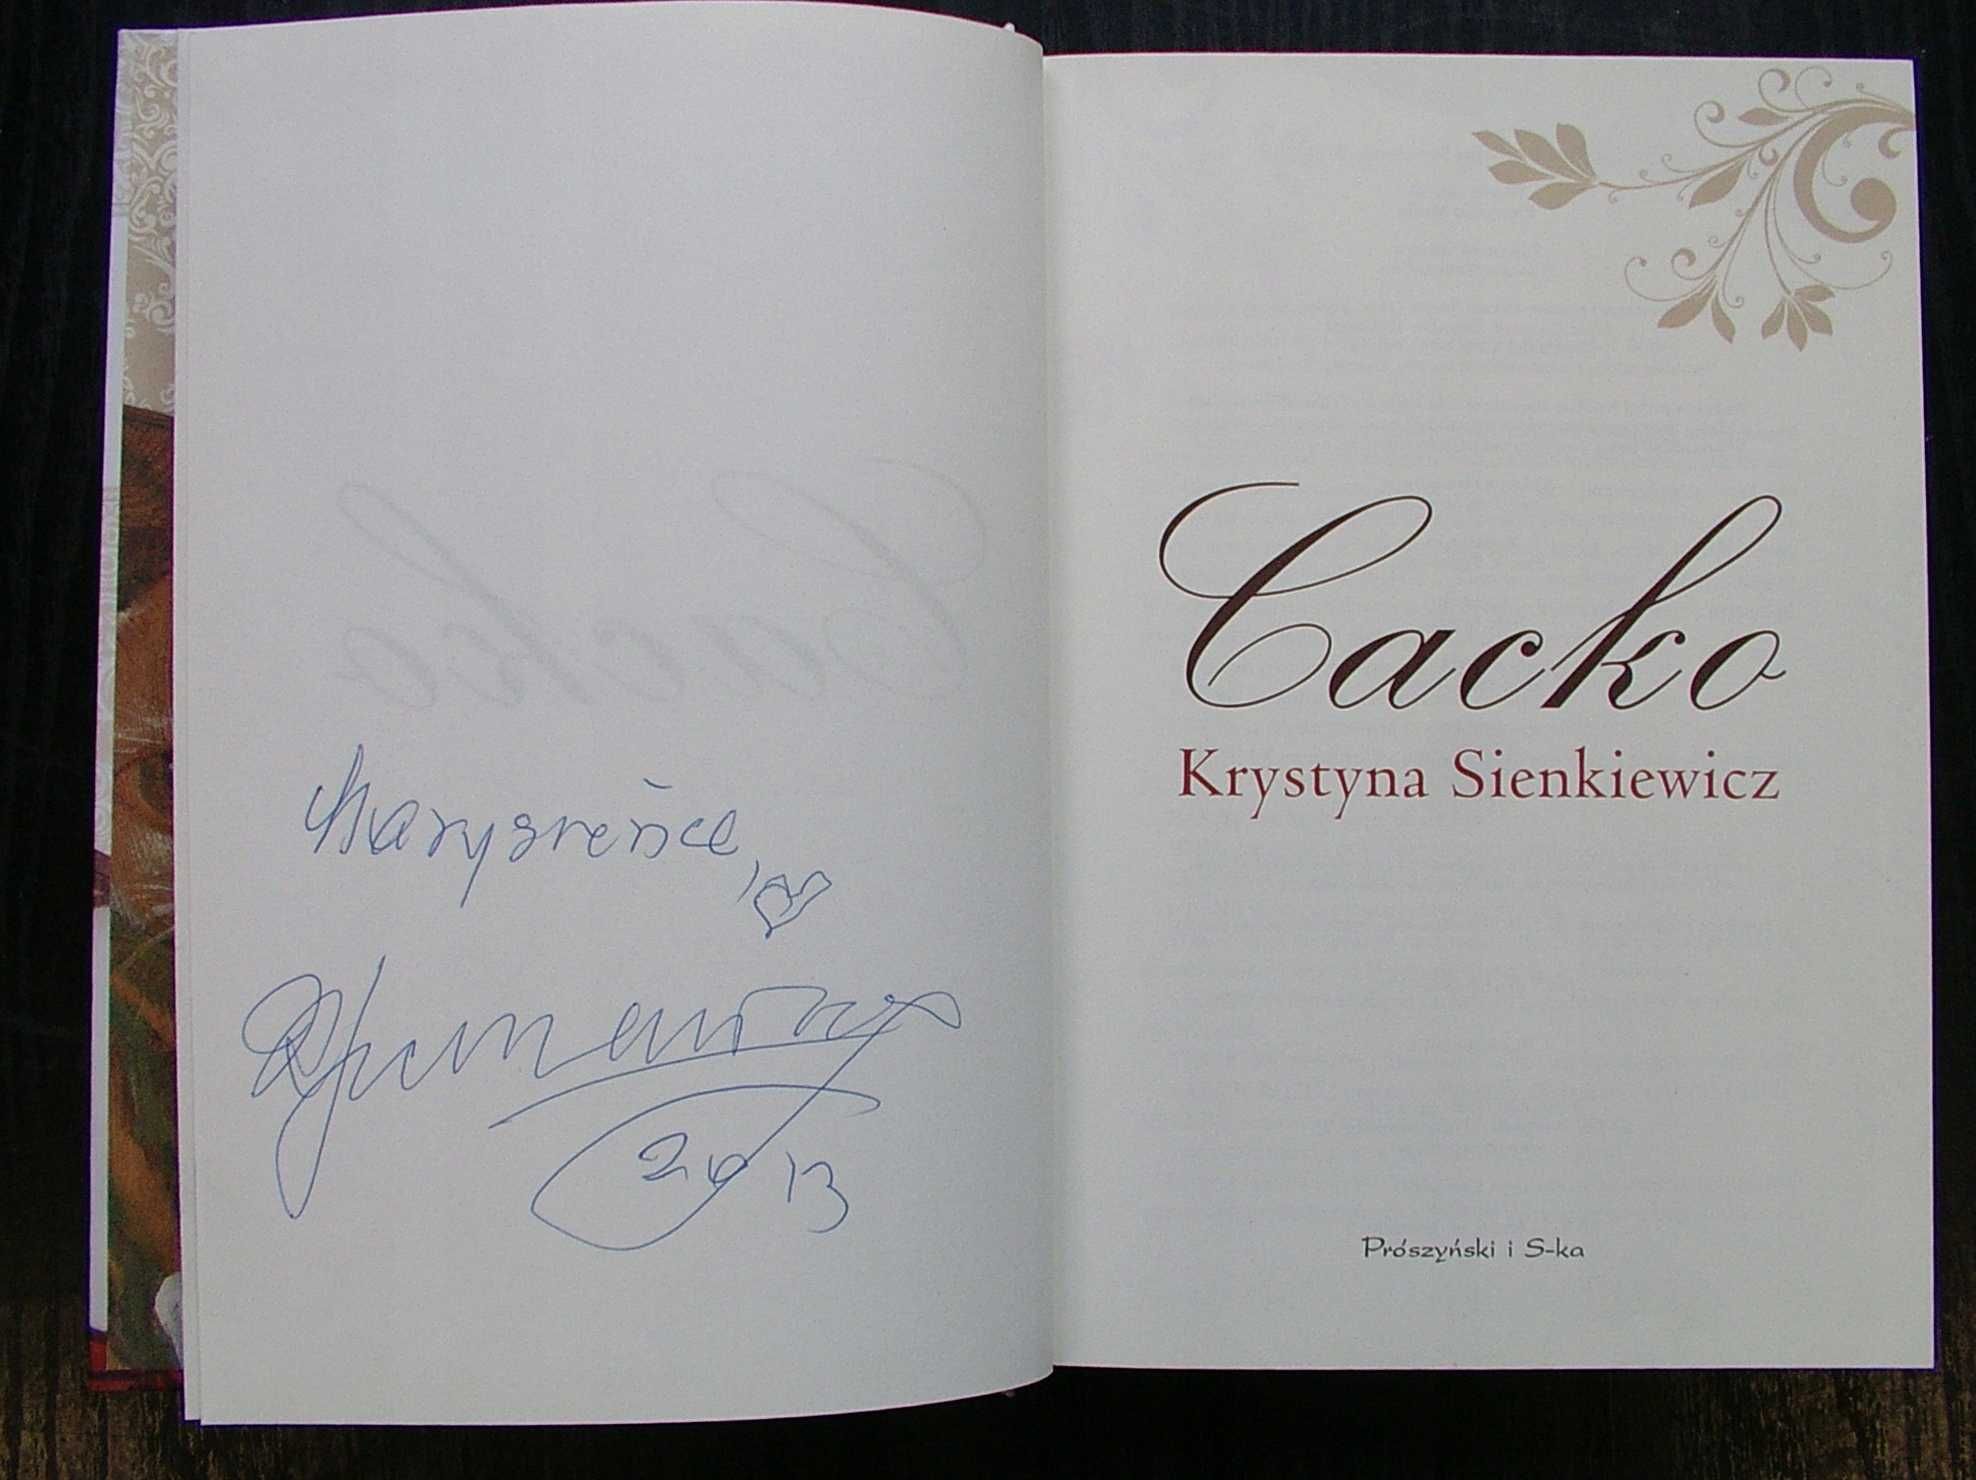 Marysieńce
2013
Cacko
Krystyna Sienkiewicz
Prószyński i S-ka